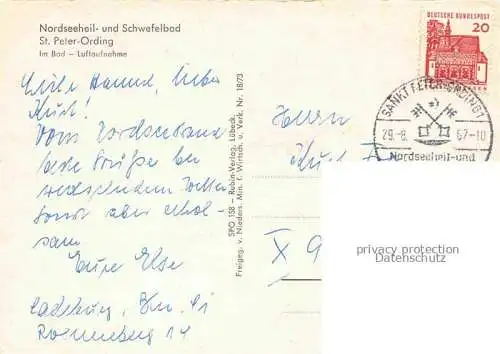 Nordseeheil- und Schwefelbad
St. Peter-Ording
Im Bad – Luftaufnahme
Liebe Hanna, lieber
Kurt!
Vom Nordseestrand
beste Grüße bei
wechselndem Wetter
sonst aber erhol-
sam
Eure Else
SPO 158 – Rubin-Verlag, Lübeck.
Freigeg. v. Nieders. Min. f. Wirtsch. u. Verk. Nr. 18/73
Herrn
Kurt
X 9
DEUTSCHE BUNDESPOST
20
SANKT PETER-ORDING 1
29.-8. 67.-10
Nordseeheil-und
privacy protection
Datenschutz